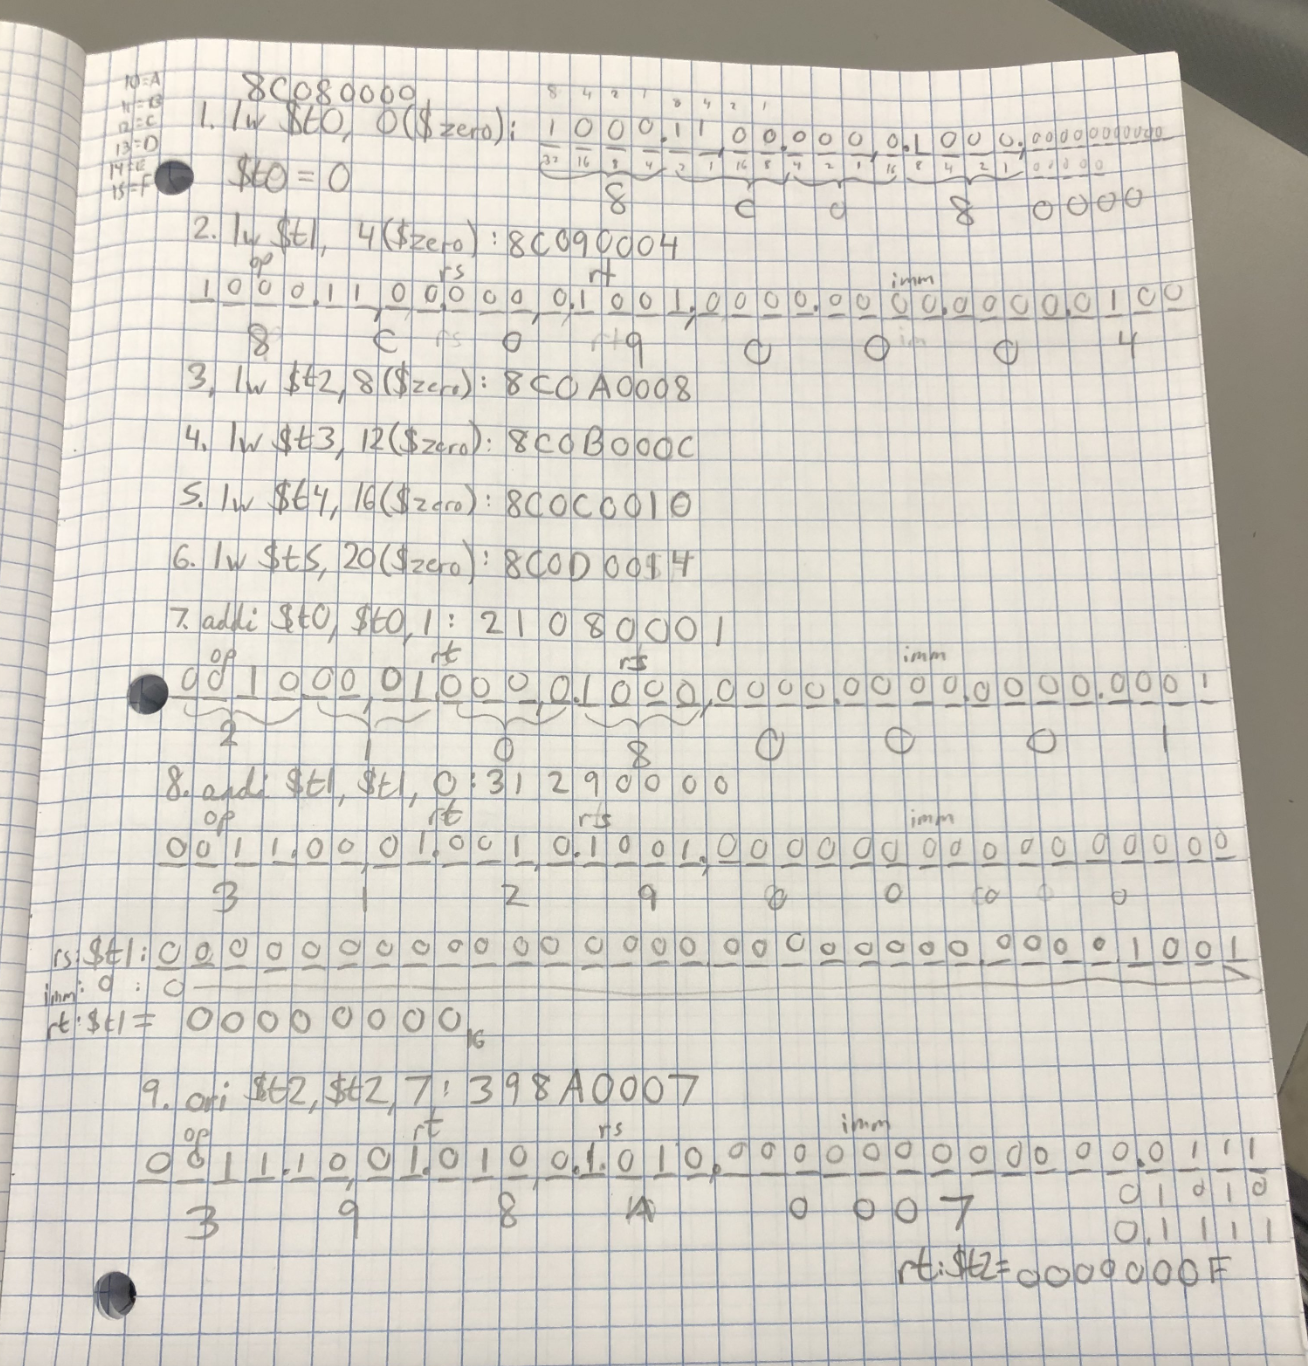 10=A
11=B
12=C
13=D
14=E
15=F
8C080000
8 4 2 1 8 4 2 1
1. lw $t0, 0($zero): 1 0 0 0 1 1 0 0 0 0 0 0 1 0 0 0 0 0 0 0 0 0 0 0 0 0 0
32 16 8 4 2 1 16 8 4 2 1 16 8 4 2 1 0 0 0 0 0
$t0 = 0
8 C 0 8 0 0 0 0
2. lw $t1, 4($zero): 8C090004
op rs rt imm
1 0 0 0 1 1 0 0 0 0 0 0 1 0 0 1 0 0 0 0 0 0 0 0 0 0 0 0 0 1 0 0
8 C 0 9 0 0 0 4
3. lw $t2, 8($zero): 8C0A0008
4. lw $t3, 12($zero): 8C0B000C
5. lw $t4, 16($zero): 8C0C0010
6. lw $t5, 20($zero): 8C0D0014
7. addi $t0, $t0, 1: 21080001
op rt rs imm
0 0 1 0 0 0 0 1 0 0 0 0 1 0 0 0 0 0 0 0 0 0 0 0 0 0 0 0 0 0 0 1
2 1 0 8 0 0 0 1
8. andi $t1, $t1, 0: 31290000
op rt rs imm
0 0 1 1 0 0 0 1 0 0 1 0 1 0 0 1 0 0 0 0 0 0 0 0 0 0 0 0 0 0 0 0
3 1 2 9 0 0 0 0
rs: $t1: 0 0 0 0 0 0 0 0 0 0 0 0 0 0 0 0 0 0 0 0 0 0 0 0 0 0 0 0 1 0 0 1
imm: 0 : 0
rt: $t1 = 00000000 16
9. ori $t2, $t2, 7: 398A0007
op rt rs imm
0 0 1 1 1 0 0 1 0 1 0 0 1 0 1 0 0 0 0 0 0 0 0 0 0 0 0 0 0 1 1 1
0 1 0 1 0
3 9 8 A 0 0 0 7
0 1 1 1 1
rt: $t2 = 0000000F